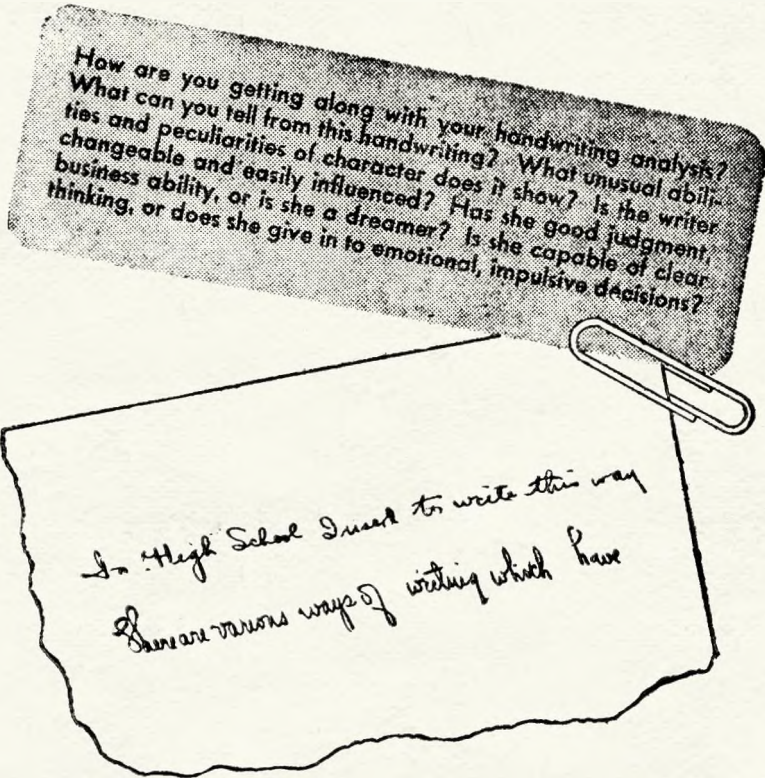 How are you getting along with your handwriting analysis?
What can you tell from this handwriting? What unusual abili-
ties and peculiarities of character does it show? Is the writer
changeable and easily influenced? Has she good judgment,
business ability, or is she a dreamer? Is she capable of clear
thinking, or does she give in to emotional, impulsive decisions?
In High School I used to write this way
There are various ways of writing which have